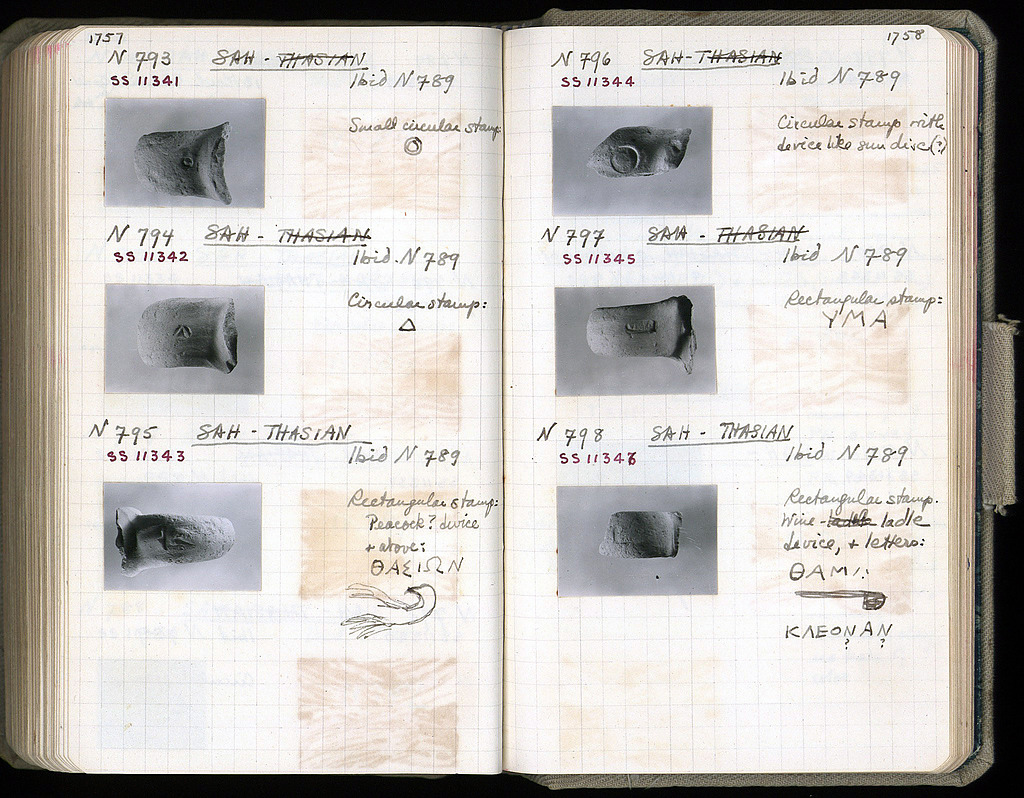 1757
N 793 SAH - THASIAN
SS 11341
Ibid N 789
Small circular stamp:
N 794 SAH - THASIAN
SS 11342
Ibid. N 789
Circular stamp:
Δ
N 795 SAH - THASIAN
SS 11343
Ibid N 789
Rectangular stamp:
Peacock? device
+ above:
ΘΑΣΙΩΝ
1758
N 796 SAH - THASIAN
SS 11344
Ibid N 789
Circular stamp with
device like sun disc(?)
N 797 SAH - THASIAN
SS 11345
Ibid N 789
Rectangular stamp:
ΥΜΑ
N 798 SAH - THASIAN
SS 11346
Ibid N 789
Rectangular stamp.
Wine - ladle ladle
device, + letters:
ΘΑΜΙ:
ΚΛΕΟΝΑΝ
? ?